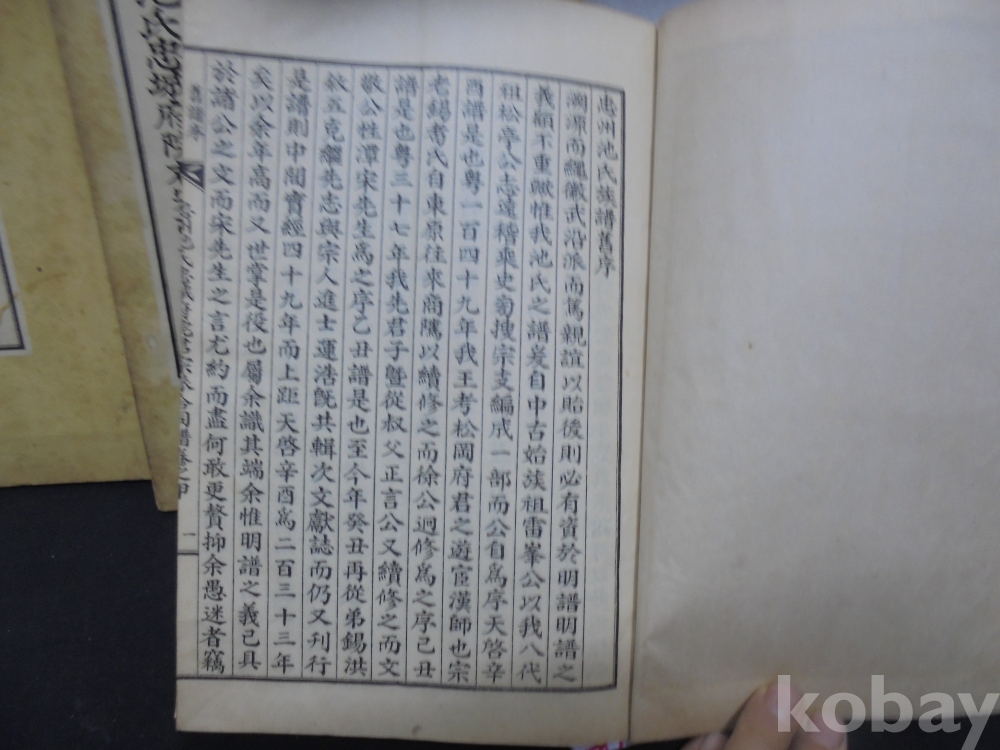 忠州池氏族譜舊序
溯源而繩徽武沿派而篤親誼以貽後則必有資於明譜明譜之
義顧不重歟惟我池氏之譜爰自中古始族祖雷峯公以我八代
祖松亭公志遠稽乘史旁搜宗支編成一部而公自爲序天啓辛
酉譜是也粤一百四十九年我王考松岡府君之遊宦漢師也宗
老錫耉氏自東原往來商隲以續修之而徐公迥修爲之序己丑
譜是也粤三十七年我先君子曁從叔父正言公又續修之而文
敬公性潭宋先生爲之序乙丑譜是也至今年癸丑再從弟錫洪
敍五克繼先志與宗人進士運浩旣共輯次文獻誌而仍又刊行
是譜則中間實經四十九年而上距天啓辛酉爲二百三十三年
矣以余年高而又世掌是役也屬余識其端余惟明譜之義已具
於諸公之文而宋先生之言尤約而盡何敢更贅抑余愚迷者竊
舊譜序
一
池氏忠
kobay